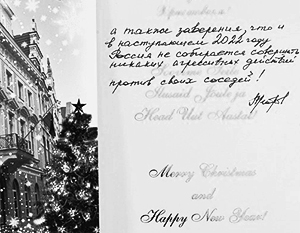 а также заверения, что и
в наступающем 2022 году
Россия не собирается совершать
никаких агрессивных действий
против своих соседей!
Häid Jõule ja
Head Uut Aastat!
Merry Christmas
and
Happy New Year!